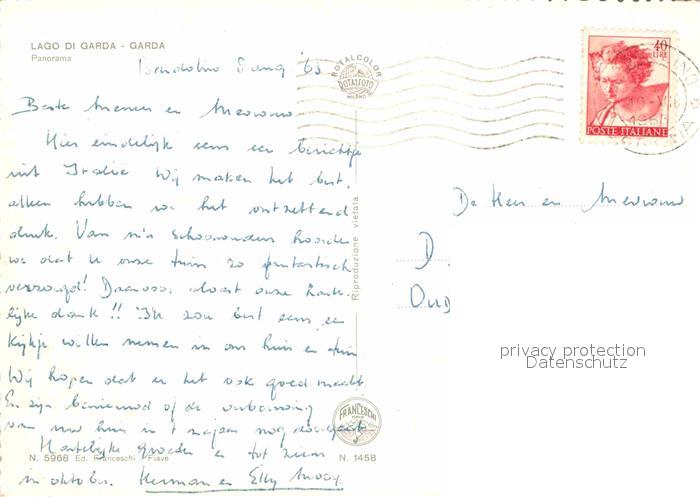 LAGO DI GARDA - GARDA
Panorama
Bardolino 8 aug '63
Beste Meneer en Mevrouw
Hier eindelijk eens een berichtje
uit Italië Wij maken het best,
alleen hebben we het ontzettend
druk. Van m'n schoonouders hoorde
we dat u onze tuin zo fantastisch
verzorgd! Daarvoor alvast onze harte-
lijke dank!! Ik zou best eens een
kijkje willen nemen in ons huis en tuin
Wij hopen dat u het ook goed maakt.
En zijn benieuwd of de verbouwing
van uw huis in 't najaar nog doorgaat
Hartelijke groeten en tot ziens
in oktober. Herman en Elly
ROTALCOLOR
ROTALFOTO
MILANO
40
LIRE
POSTE ITALIANE
De Heer en Mevrouw
D.
OUD
Riproduzione vietata
privacy protection
Datenschutz
FRANCESCHI
N. 5968 Ed. Franceschi - Fiave N. 1458